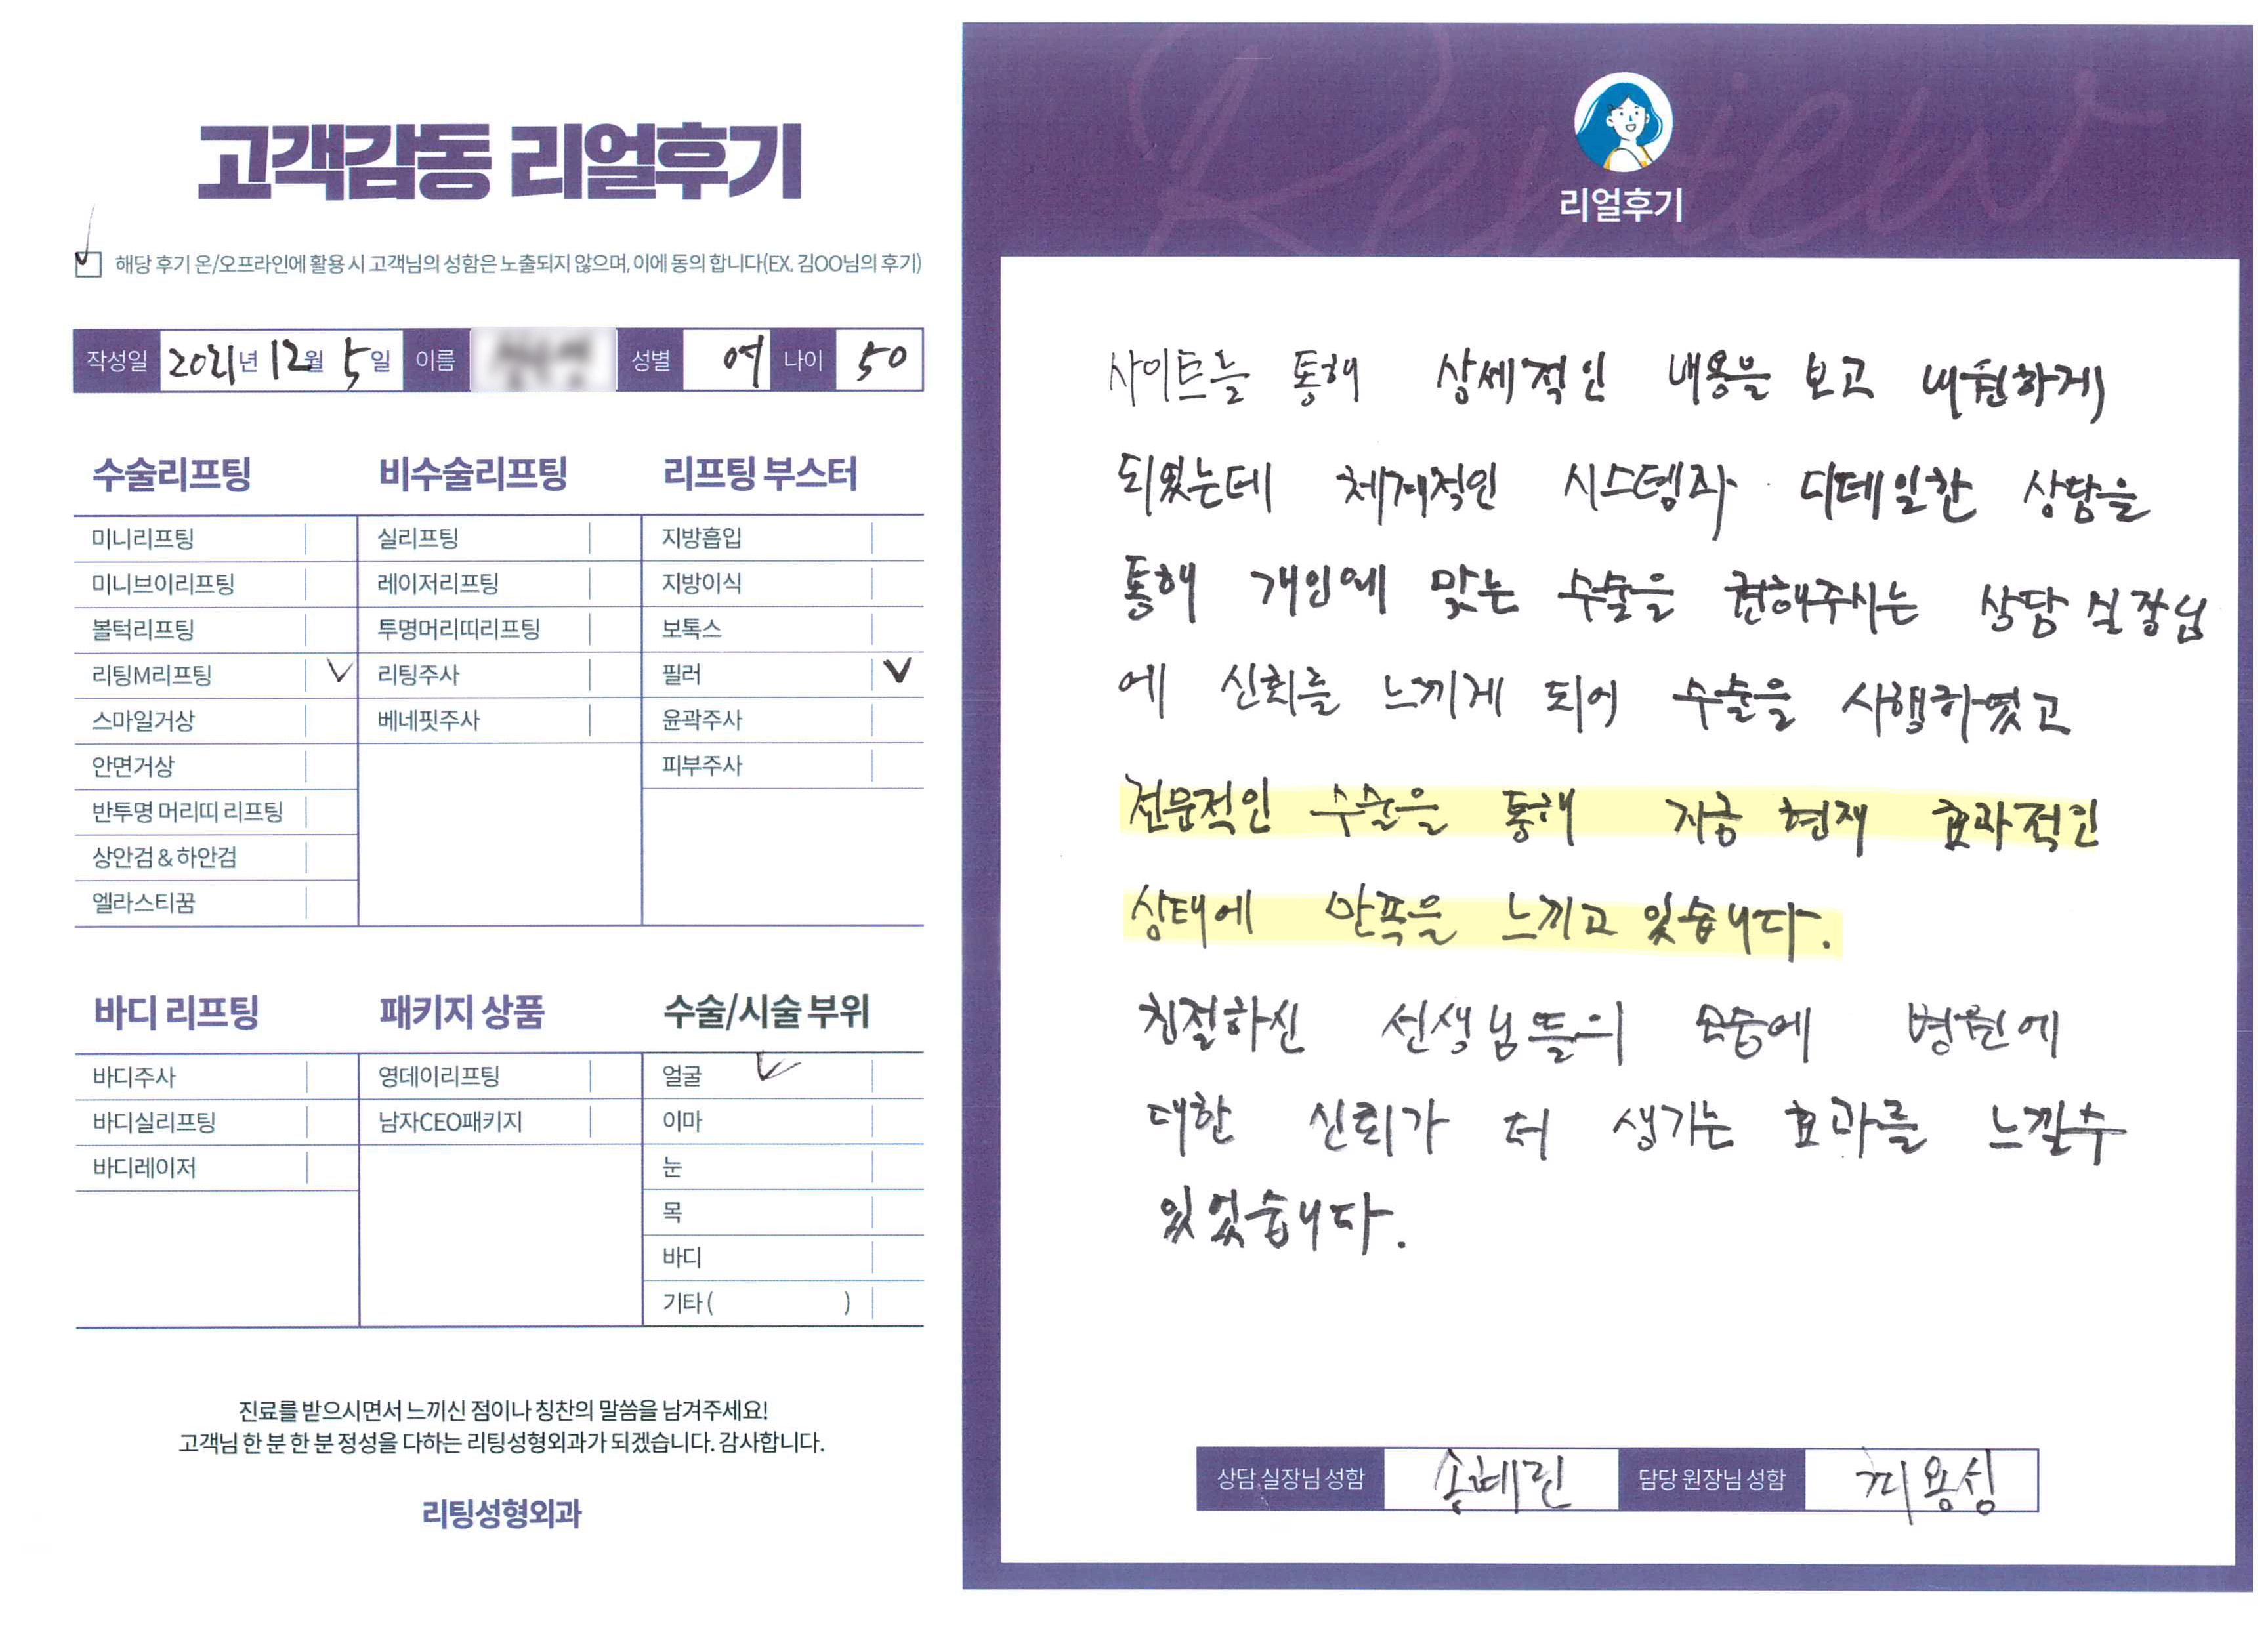 고객감동 리얼후기
해당 후기 온/오프라인에 활용 시 고객님의 성함은 노출되지 않으며, 이에 동의 합니다(EX. 김OO님의 후기)
작성일 2021년 12월 5일 이름 성별 여 나이 50
수술리프팅
미니리프팅
미니브이리프팅
볼턱리프팅
리팅M리프팅
스마일거상
안면거상
반투명 머리띠 리프팅
상안검 & 하안검
엘라스티꿈
비수술리프팅
실리프팅
레이저리프팅
투명머리띠리프팅
리팅주사
베네핏주사
리프팅 부스터
지방흡입
지방이식
보톡스
필러
윤곽주사
피부주사
바디 리프팅
바디주사
바디실리프팅
바디레이저
패키지 상품
영데이리프팅
남자CEO패키지
수술/시술 부위
얼굴
이마
눈
목
바디
기타 ( )
진료를 받으시면서 느끼신 점이나 칭찬의 말씀을 남겨주세요!
고객님 한 분 한 분 정성을 다하는 리팅성형외과가 되겠습니다. 감사합니다.
리팅성형외과
Review
리얼후기
사이트를 통해 상세적인 내용을 보고 내원하게
되었는데 체계적인 시스템과 디테일한 상담을
통해 개인에 맞는 수술을 권해주시는 상담 실장님
에 신뢰를 느끼게 되어 수술을 시행하였고
전문적인 수술을 통해 지금 현재 효과적인
상태에 만족을 느끼고 있습니다.
친절하신 선생님들의 모습에 병원에
대한 신뢰가 더 생기는 효과를 느낄수
있었습니다.
상담 실장님 성함 송혜린 담당 원장님 성함 용성